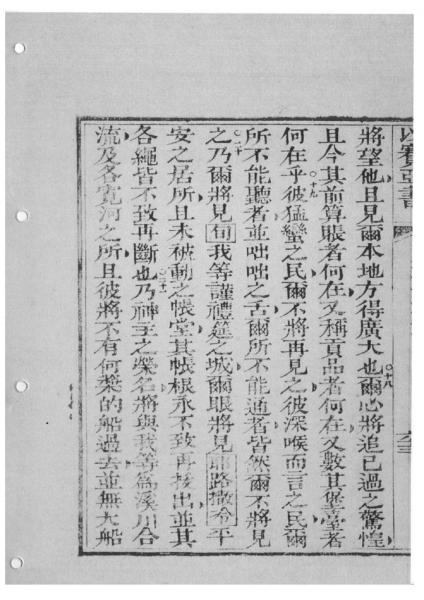 以賽亞書
將望他且見爾本地方得廣大也○十八爾心將追已過之驚惶
且今其前算賬者何在又稱貢品者何在又數其堡臺者
何在乎○十九彼猛蠻之民爾不將再見之彼深喉而言之民爾
所不能聽者並咄咄之舌爾所不能通者皆然爾不將見
之○二十乃爾將見旬我等謹禮筵之城爾眼將見耶路撒冷平
安之居所且未被動之帳堂其帳根永不致再拔出並其
各繩皆不致再斷也○二十一乃神主之榮名將與我等為溪川合
流及各寬河之所且彼將不有何槳的船過去並無大船